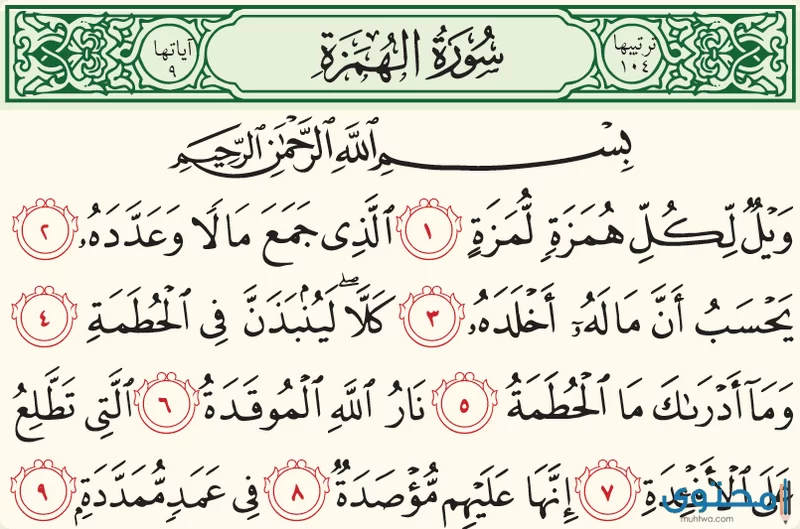 ترتيبها
١٠٤
سُورَةُ الهُمَزَةِ
آياتها
٩
بِسْمِ ٱللَّهِ ٱلرَّحْمَٰنِ ٱلرَّحِيمِ
وَيْلٌ لِّكُلِّ هُمَزَةٍ لُّمَزَةٍ ١ ٱلَّذِى جَمَعَ مَالًا وَعَدَّدَهُۥ ٢
يَحْسَبُ أَنَّ مَالَهُۥٓ أَخْلَدَهُۥ ٣ كَلَّا ۖ لَيُنۢبَذَنَّ فِى ٱلْحُطَمَةِ ٤
وَمَآ أَدْرَىٰكَ مَا ٱلْحُطَمَةُ ٥ نَارُ ٱللَّهِ ٱلْمُوقَدَةُ ٦ ٱلَّتِى تَطَّلِعُ
عَلَى ٱلْأَفْـِٔدَةِ ٧ إِنَّهَا عَلَيْهِم مُّؤْصَدَةٌ ٨ فِى عَمَدٍ مُّمَدَّدَةٍۭ ٩
محتوى
muhtwa.com